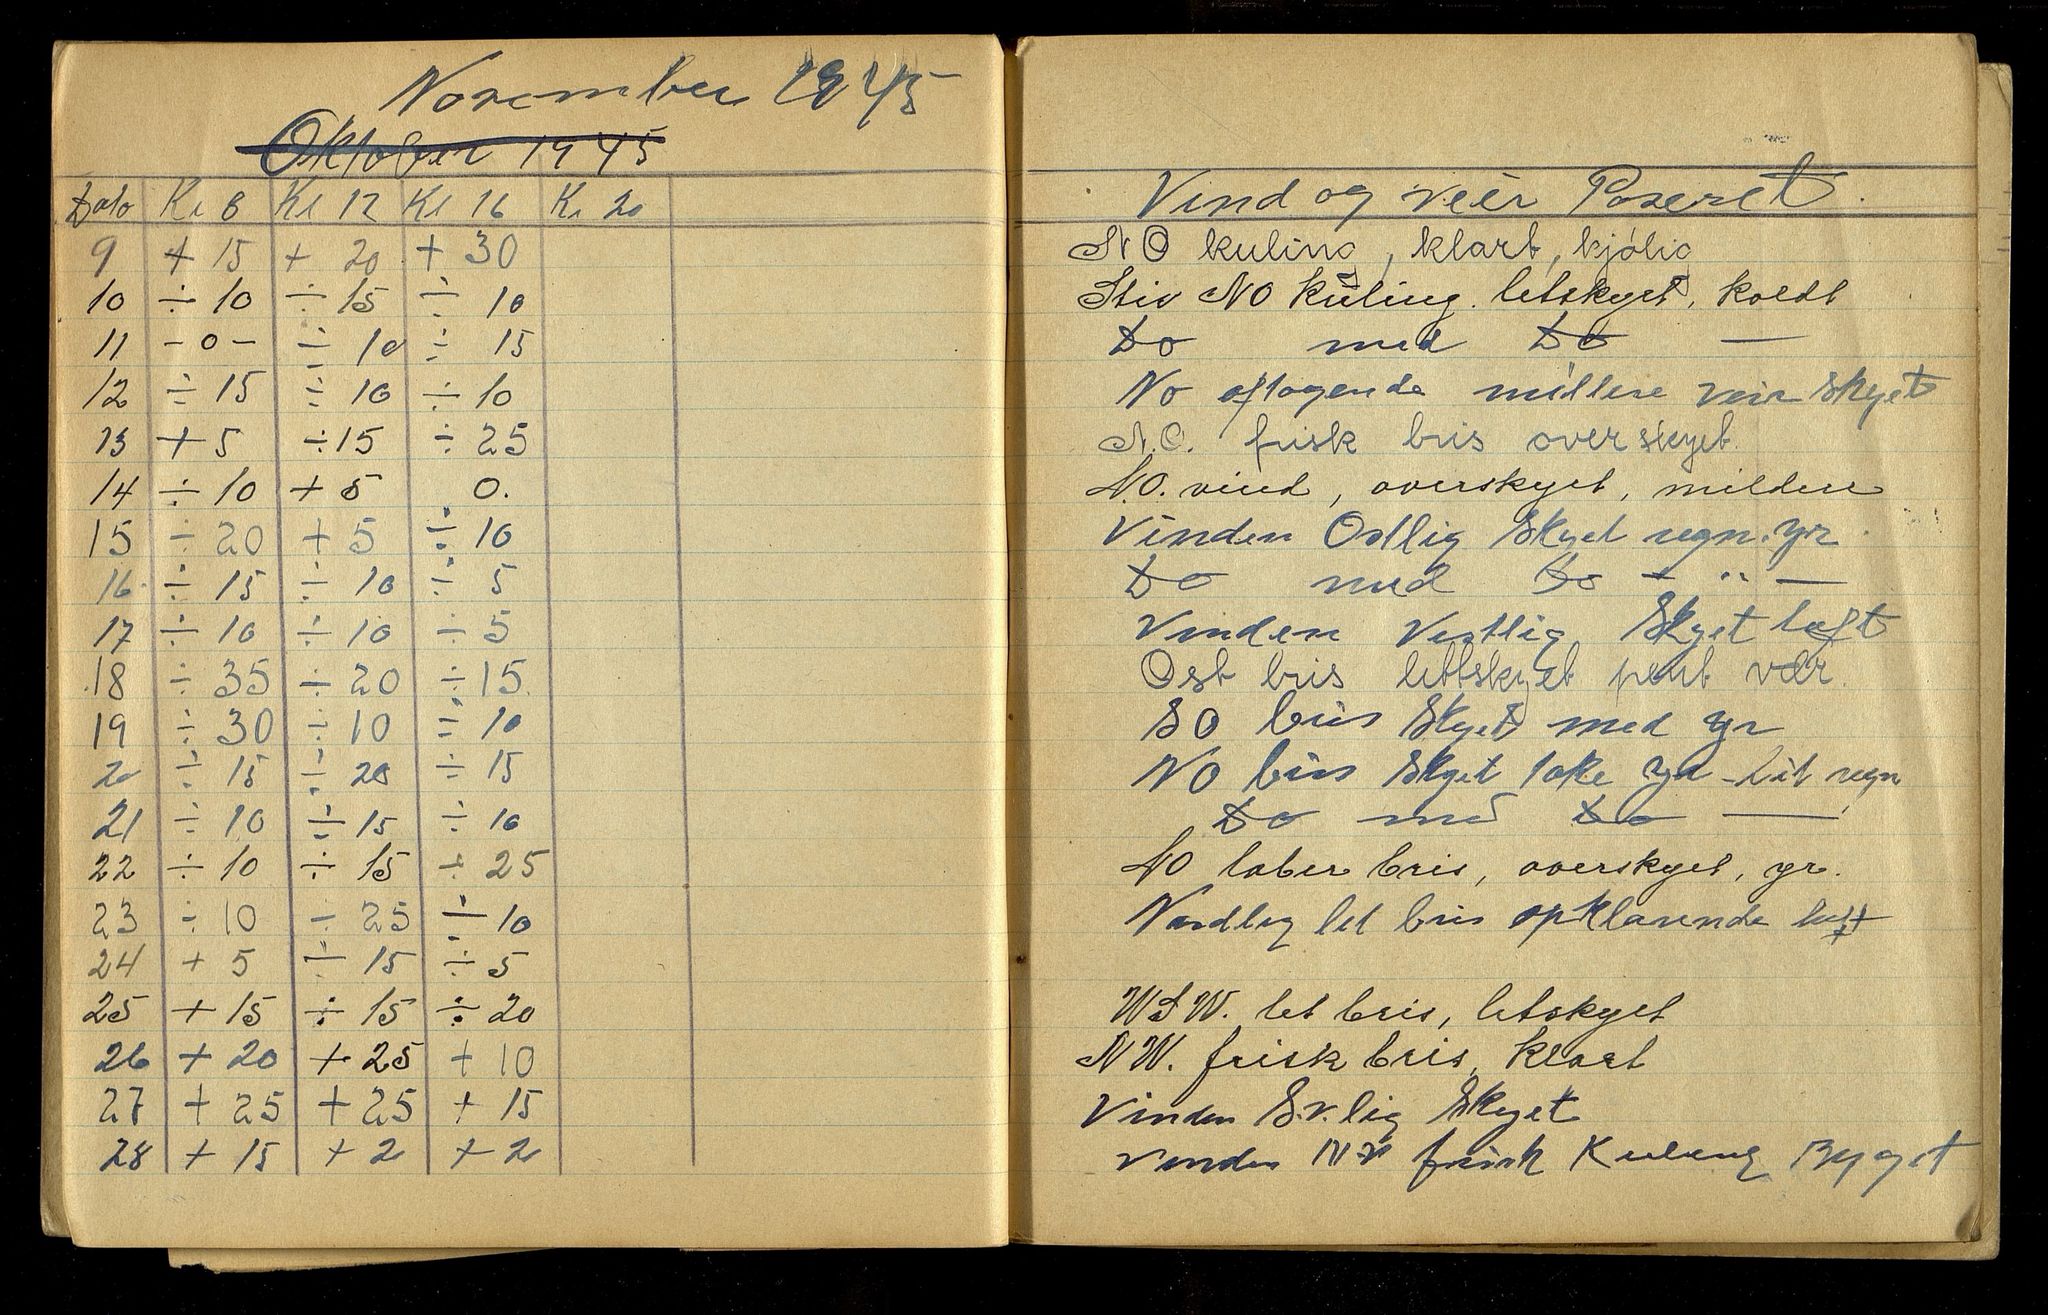 November 1945
Oktober 1945
Dato Kl 8 Kl 12 Kl 16 Kl 20
9 + 15 + 20 + 30
10 ÷ 10 ÷ 15 ÷ 10
11 - 0 - ÷ 10 ÷ 15
12 ÷ 15 ÷ 10 ÷ 10
13 + 5 ÷ 15 ÷ 25
14 ÷ 10 + 5 0.
15 ÷ 20 + 5 ÷ 10
16 ÷ 15 ÷ 10 ÷ 5
17 ÷ 10 ÷ 10 ÷ 5
18 ÷ 35 ÷ 20 ÷ 15
19 ÷ 30 ÷ 10 ÷ 10
20 ÷ 15 ÷ 20 ÷ 15
21 ÷ 10 ÷ 15 ÷ 10
22 ÷ 10 ÷ 15 ÷ 25
23 ÷ 10 ÷ 25 ÷ 10
24 + 5 ÷ 15 ÷ 5
25 + 15 ÷ 15 ÷ 20
26 + 20 + 25 + 10
27 + 25 + 25 + 15
28 + 15 + 2 + 2
Vind og veir
NO kuling, klart, kjølig
Stiv NO kuling. letskyet, koldt
Do med Do —
No aftagende mildere veir Skyet
N.O. frisk bris overskyet
N.O. vind, overskyet, mildere
Vinden Ostlig Skyet regn. yr.
Do med Do - " -
Vinden Vestlig Skyet luft
Ost bris lettskyet pent vær.
SO bris Skyet med yr
NO bris Skyet toke yr - lit regn
Do med Do —
NO laber bris, overskyet, yr.
Nordlig let bris opklarende luft
WSW. let bris, letskyet
NW. frisk bris, klart
Vinden S.v.lig Skyet
Vinden NV frisk Kuling Byget